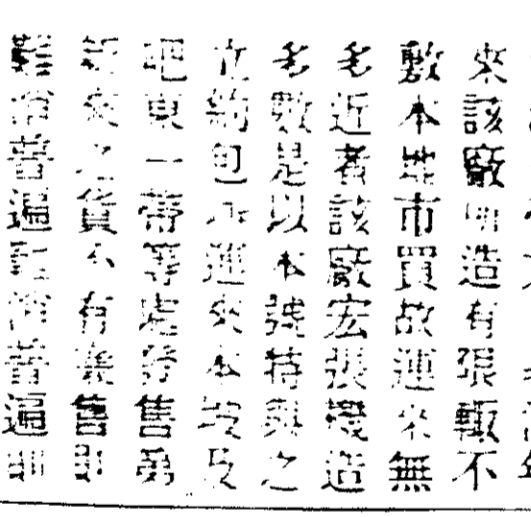 來該廠所造有限輙不
敷本地市買故運來無
多近者該廠宏張機造
多數是以本號特與之
立約包办運來本坡及
吧東一帶等處發售弟
新來之貨不有售即
普遍普遍即